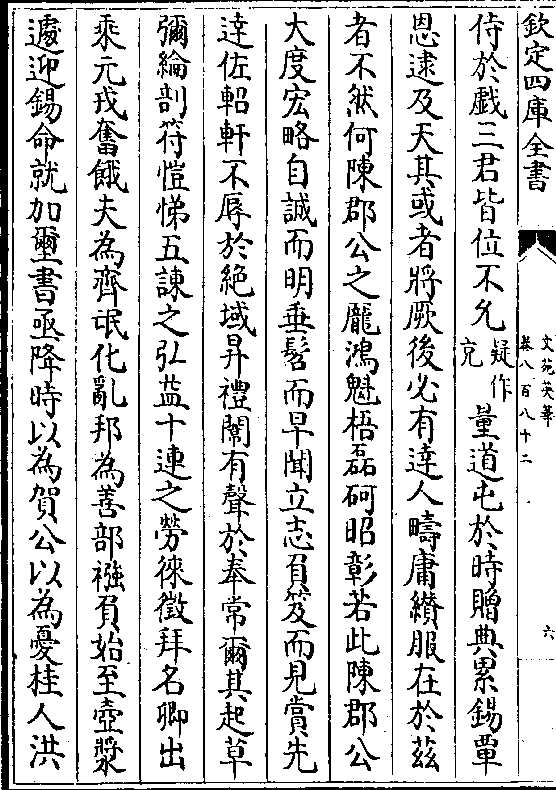 欽定四庫全書
文苑英華
卷八百八十二
六
侍於戲三君皆位不允疑作克量道屯於時贈典累錫覃
恩逮及天其或者將厥後必有達人疇庸纘服在於茲
者不然何陳郡公之龎鴻魁梧磊砢昭彰若此陳郡公
大度宏略自誠而明垂髫而早聞立志負笈而見賞先
逹佐軺軒不辱於絶域昇禮闈有聲於奉常爾其起草
彌綸剖符愷悌五諫之弘益十連之勞徠徵拜名卿出
乘元戎奮餓夫為齊氓化亂邦為善部襁負始至壺漿
遽迎錫命就加璽書亟降時以為賀公以為憂桂人洪